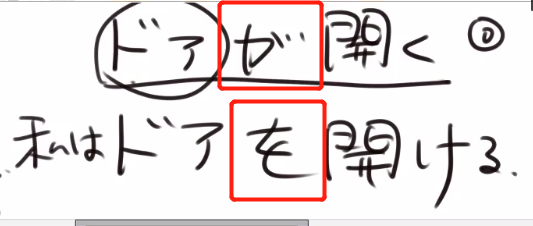 ドアが開く ⓪
私はドアを開ける.